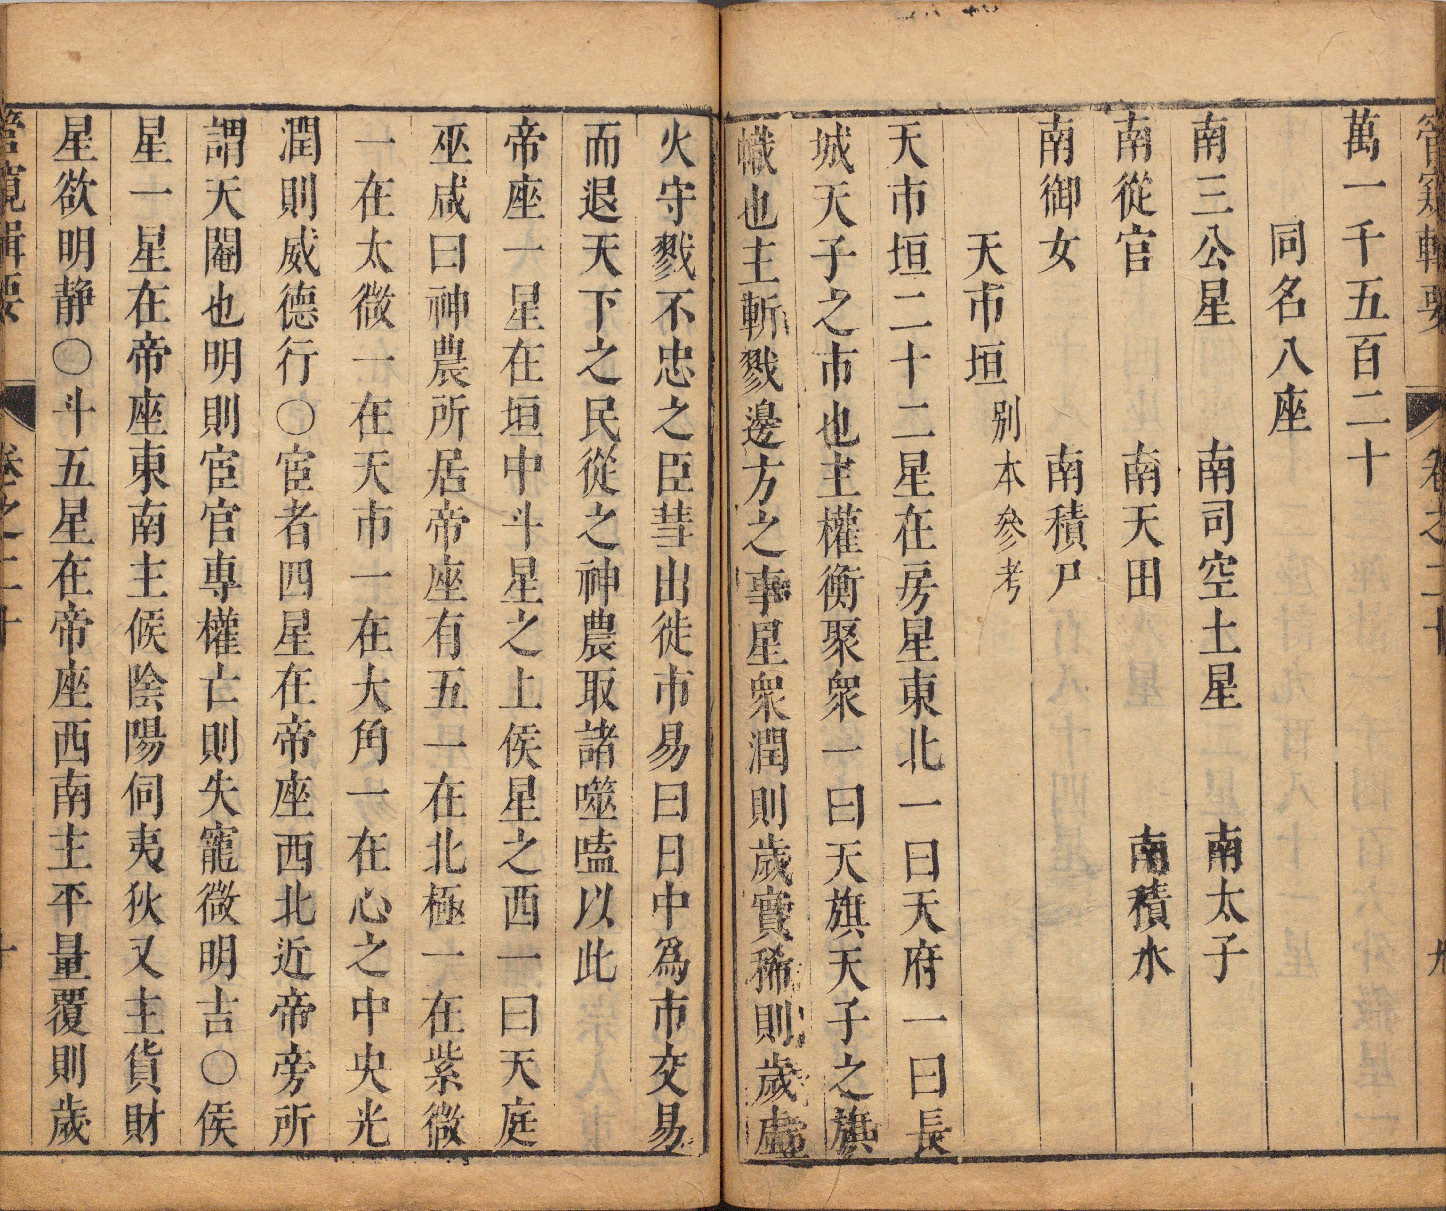 管窺輯要 卷之二十 九
萬一千五百二十
同名八座
南三公星 南司空土星 南太子
南從官 南天田 南積水
南御女 南積尸
天市垣 别本參考
天市垣二十二星在房星東北一曰天府一曰長
城天子之市也主權衡聚衆一曰天旗天子之旗
幟也主斬戮邊方之事星衆潤則歲實稀則歲虛
火守戮不忠之臣彗出徙市易曰日中為市交易
而退天下之民從之神農取諸噬嗑以此
帝座一星在垣中斗星之上侯星之西一曰天庭
巫咸曰神農所居帝座有五一在北極一在紫微
一在太微一在天市一在大角一在心之中央光
潤則威德行〇宦者四星在帝座西北近帝旁所
謂天閹也明則宦官專權亡則失寵微明吉〇侯
星一星在帝座東南主候陰陽伺夷狄又主貨財
星欲明静〇斗五星在帝座西南主平量覆則歲
管窺輯要 卷之二十 十